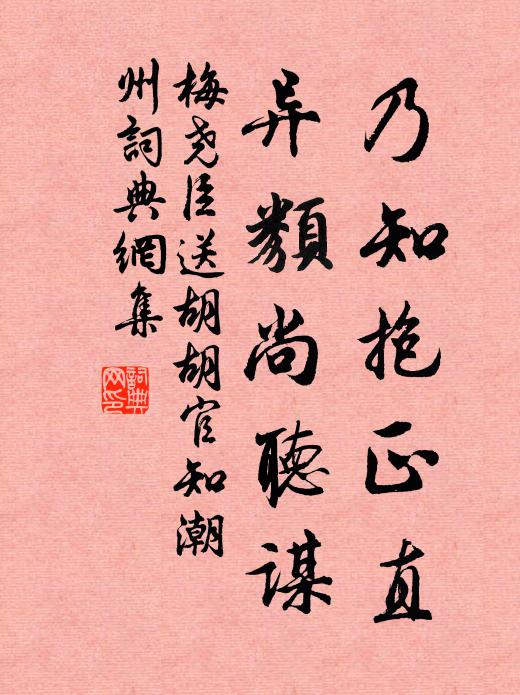 乃知抱正直
异類尚聽謀
梅尧臣送胡胡官知潮
州詞典網集
詞典网印